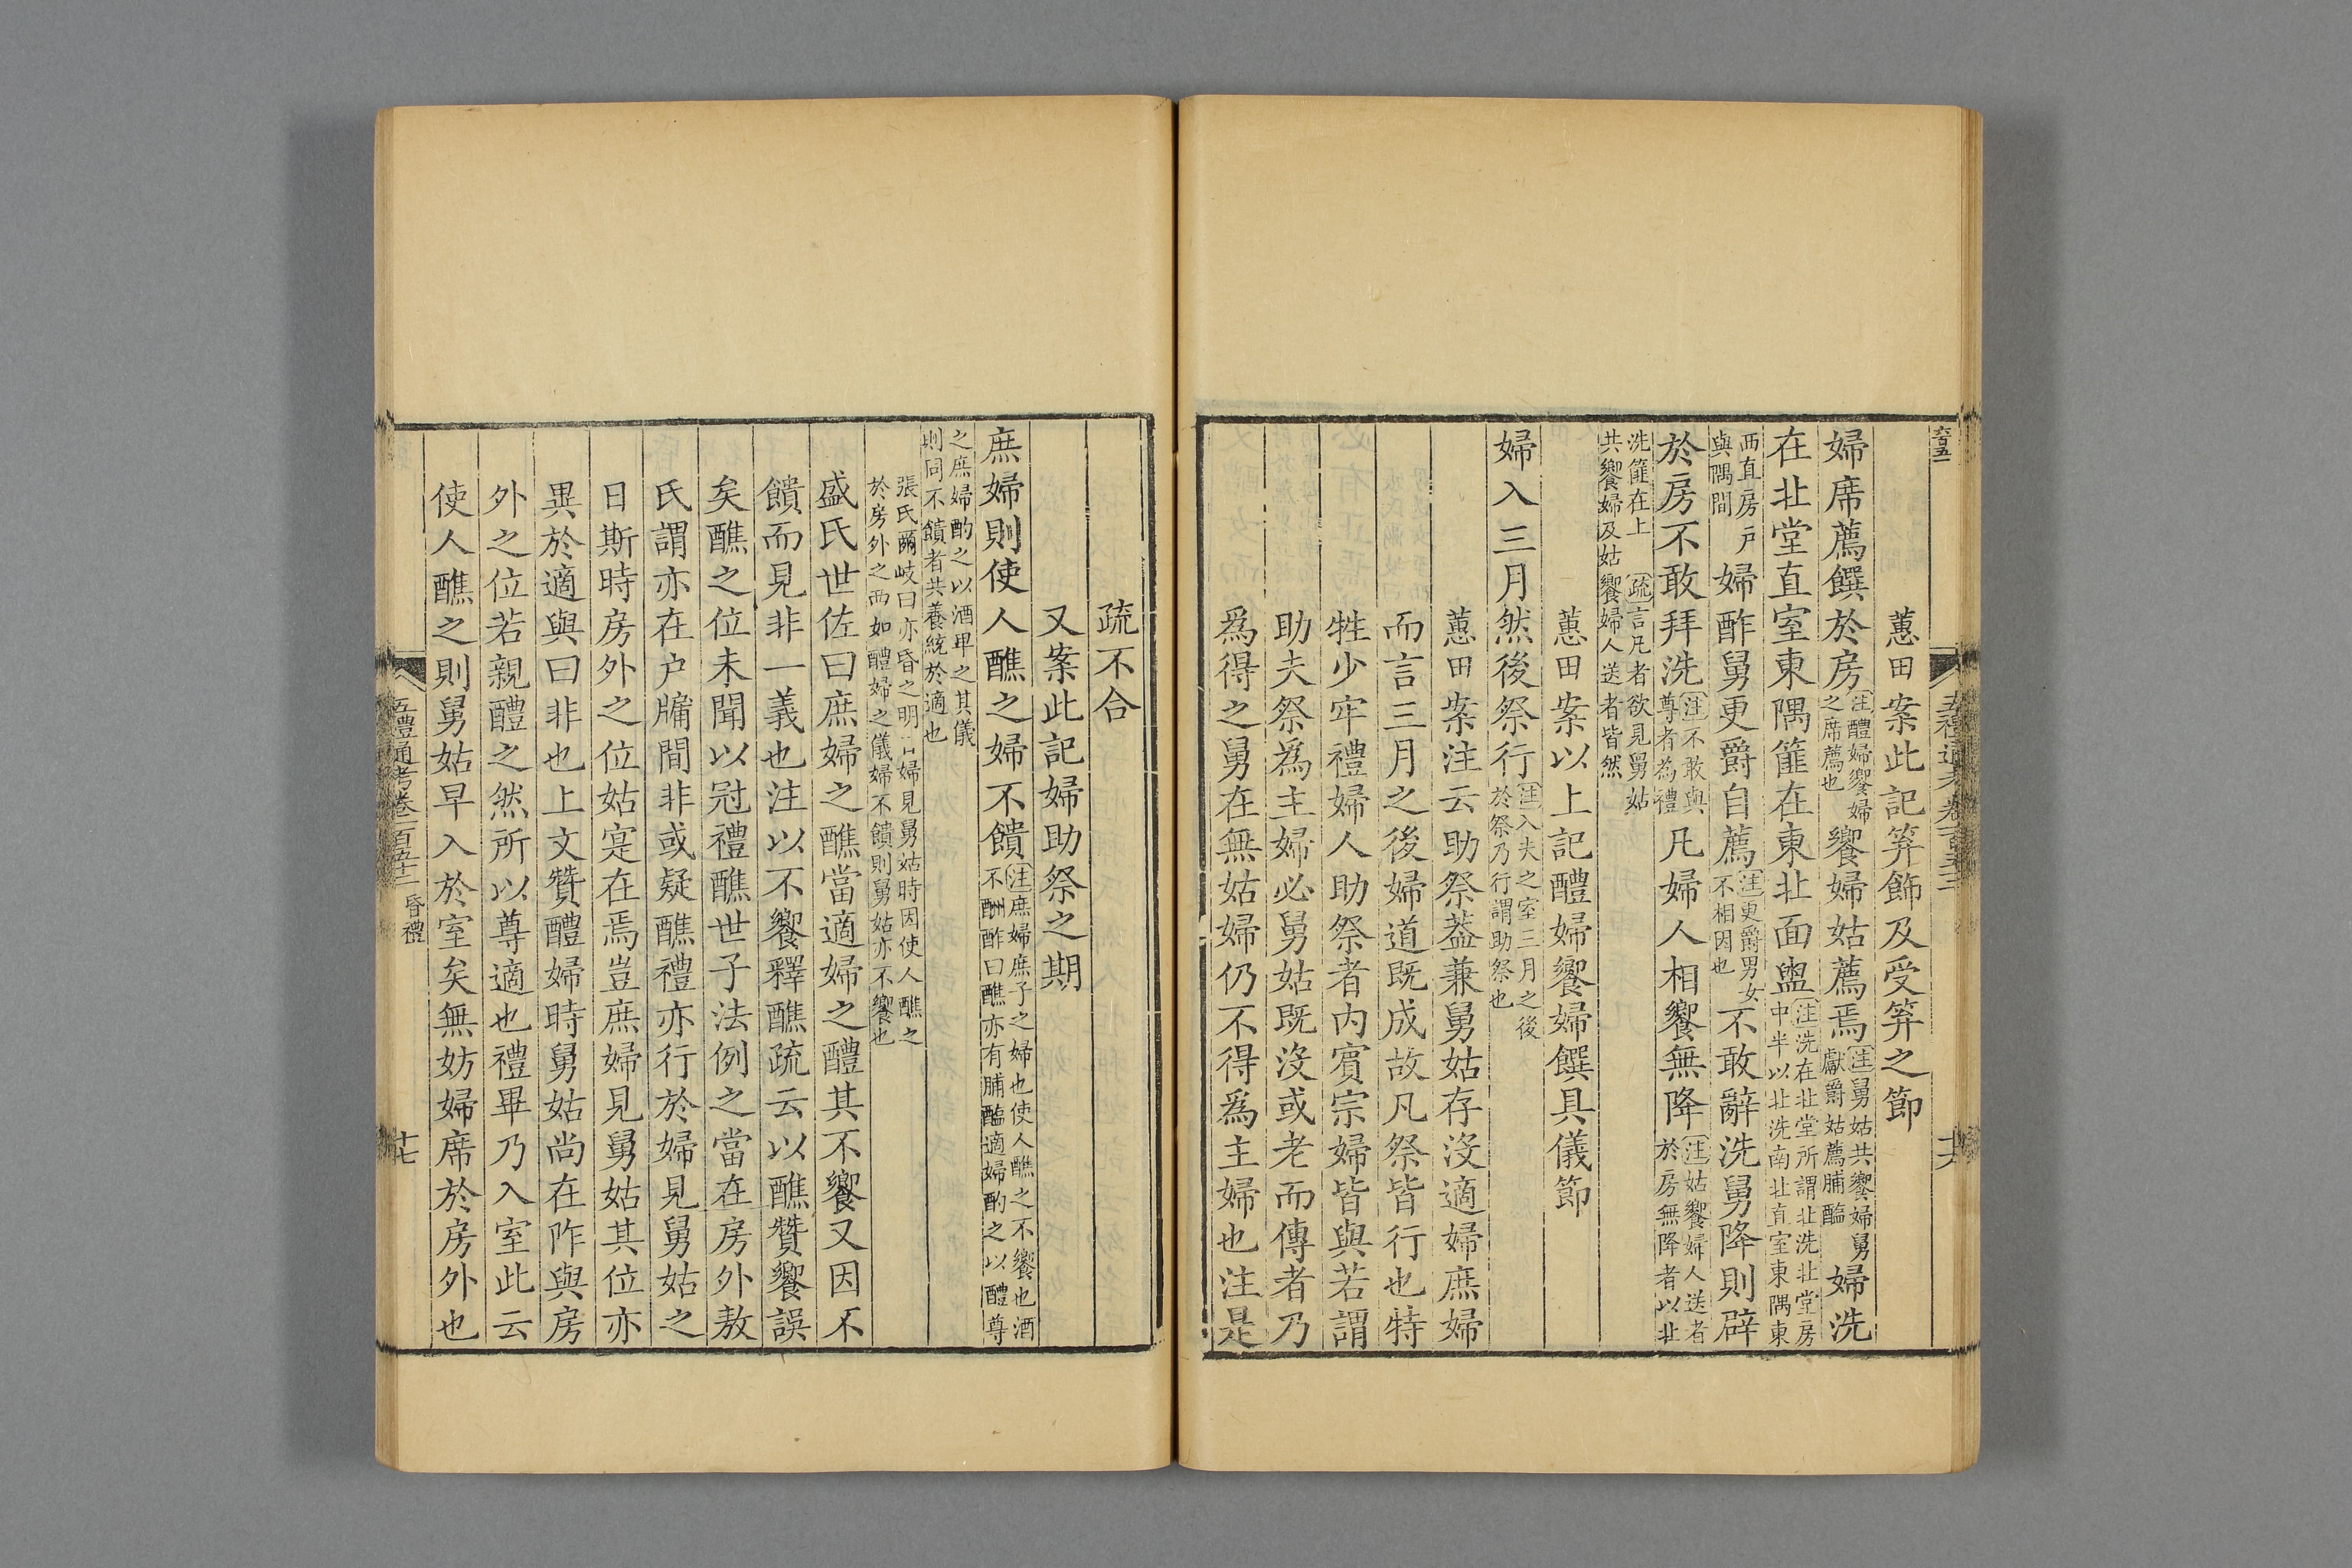 蕙田案此記笲飾及受笲之節
婦席薦饌於房注醴婦饗婦之席薦也饗婦姑薦焉注舅姑共饗婦舅獻爵姑薦脯醢婦洗
在北堂直室東隅篚在東北面盥注洗在北堂所謂北洗北堂房中半以北洗南北直室東隅東
西直房戶與隅間婦酢舅更爵自薦注更爵男女不相因也不敢辭洗舅降則辟
於房不敢拜洗注不敢與尊者為禮凡婦人相饗無降注姑饗婦人送者於房無降者以北
洗篚在上疏言凡者欲見舅姑共饗婦及姑饗婦人送者皆然
蕙田案以上記醴婦饗婦饌具儀節
婦入三月然後祭行注入夫之室三月之後於祭乃行謂助祭也
蕙田案注云助祭蓋兼舅姑存沒適婦庶婦
而言三月之後婦道既成故凡祭皆行也特
牲少牢禮婦人助祭者內賓宗婦皆與若謂
助夫祭為主婦必舅姑既沒或老而傳者乃
爲得之舅在無姑婦仍不得爲主婦也注是
疏不合
又案此記婦助祭之期
庶婦則使人醮之婦不饋注庶婦庶子之婦也使人醮之不饗也酒不酬酢曰醮亦有脯醢適婦酌之以醴尊
之庶婦酌之以酒卑之其儀則同不饋者共養統於適也
張氏爾岐曰亦昏之明日婦見舅姑時因使人醮之於房外之西如醴婦之儀婦不饋則舅姑亦不饗也
盛氏世佐曰庶婦之醮當適婦之醴其不饗又因不
饋而見非一義也注以不饗釋醮疏云以醮贊饗誤
矣醮之位未聞以冠禮醮世子法例之當在房外敖
氏謂亦在户牖間非或疑醮禮亦行於婦見舅姑之
日斯時房外之位姑寔在焉豈庶婦見舅姑其位亦
異於適與曰非也上文贊醴婦時舅姑尚在阼與房
外之位若親醴之然所以尊適也禮畢乃入室此云
使人醮之則舅姑早入於室矣無妨婦席於房外也
五禮通考卷一百五十二 昏禮
十七